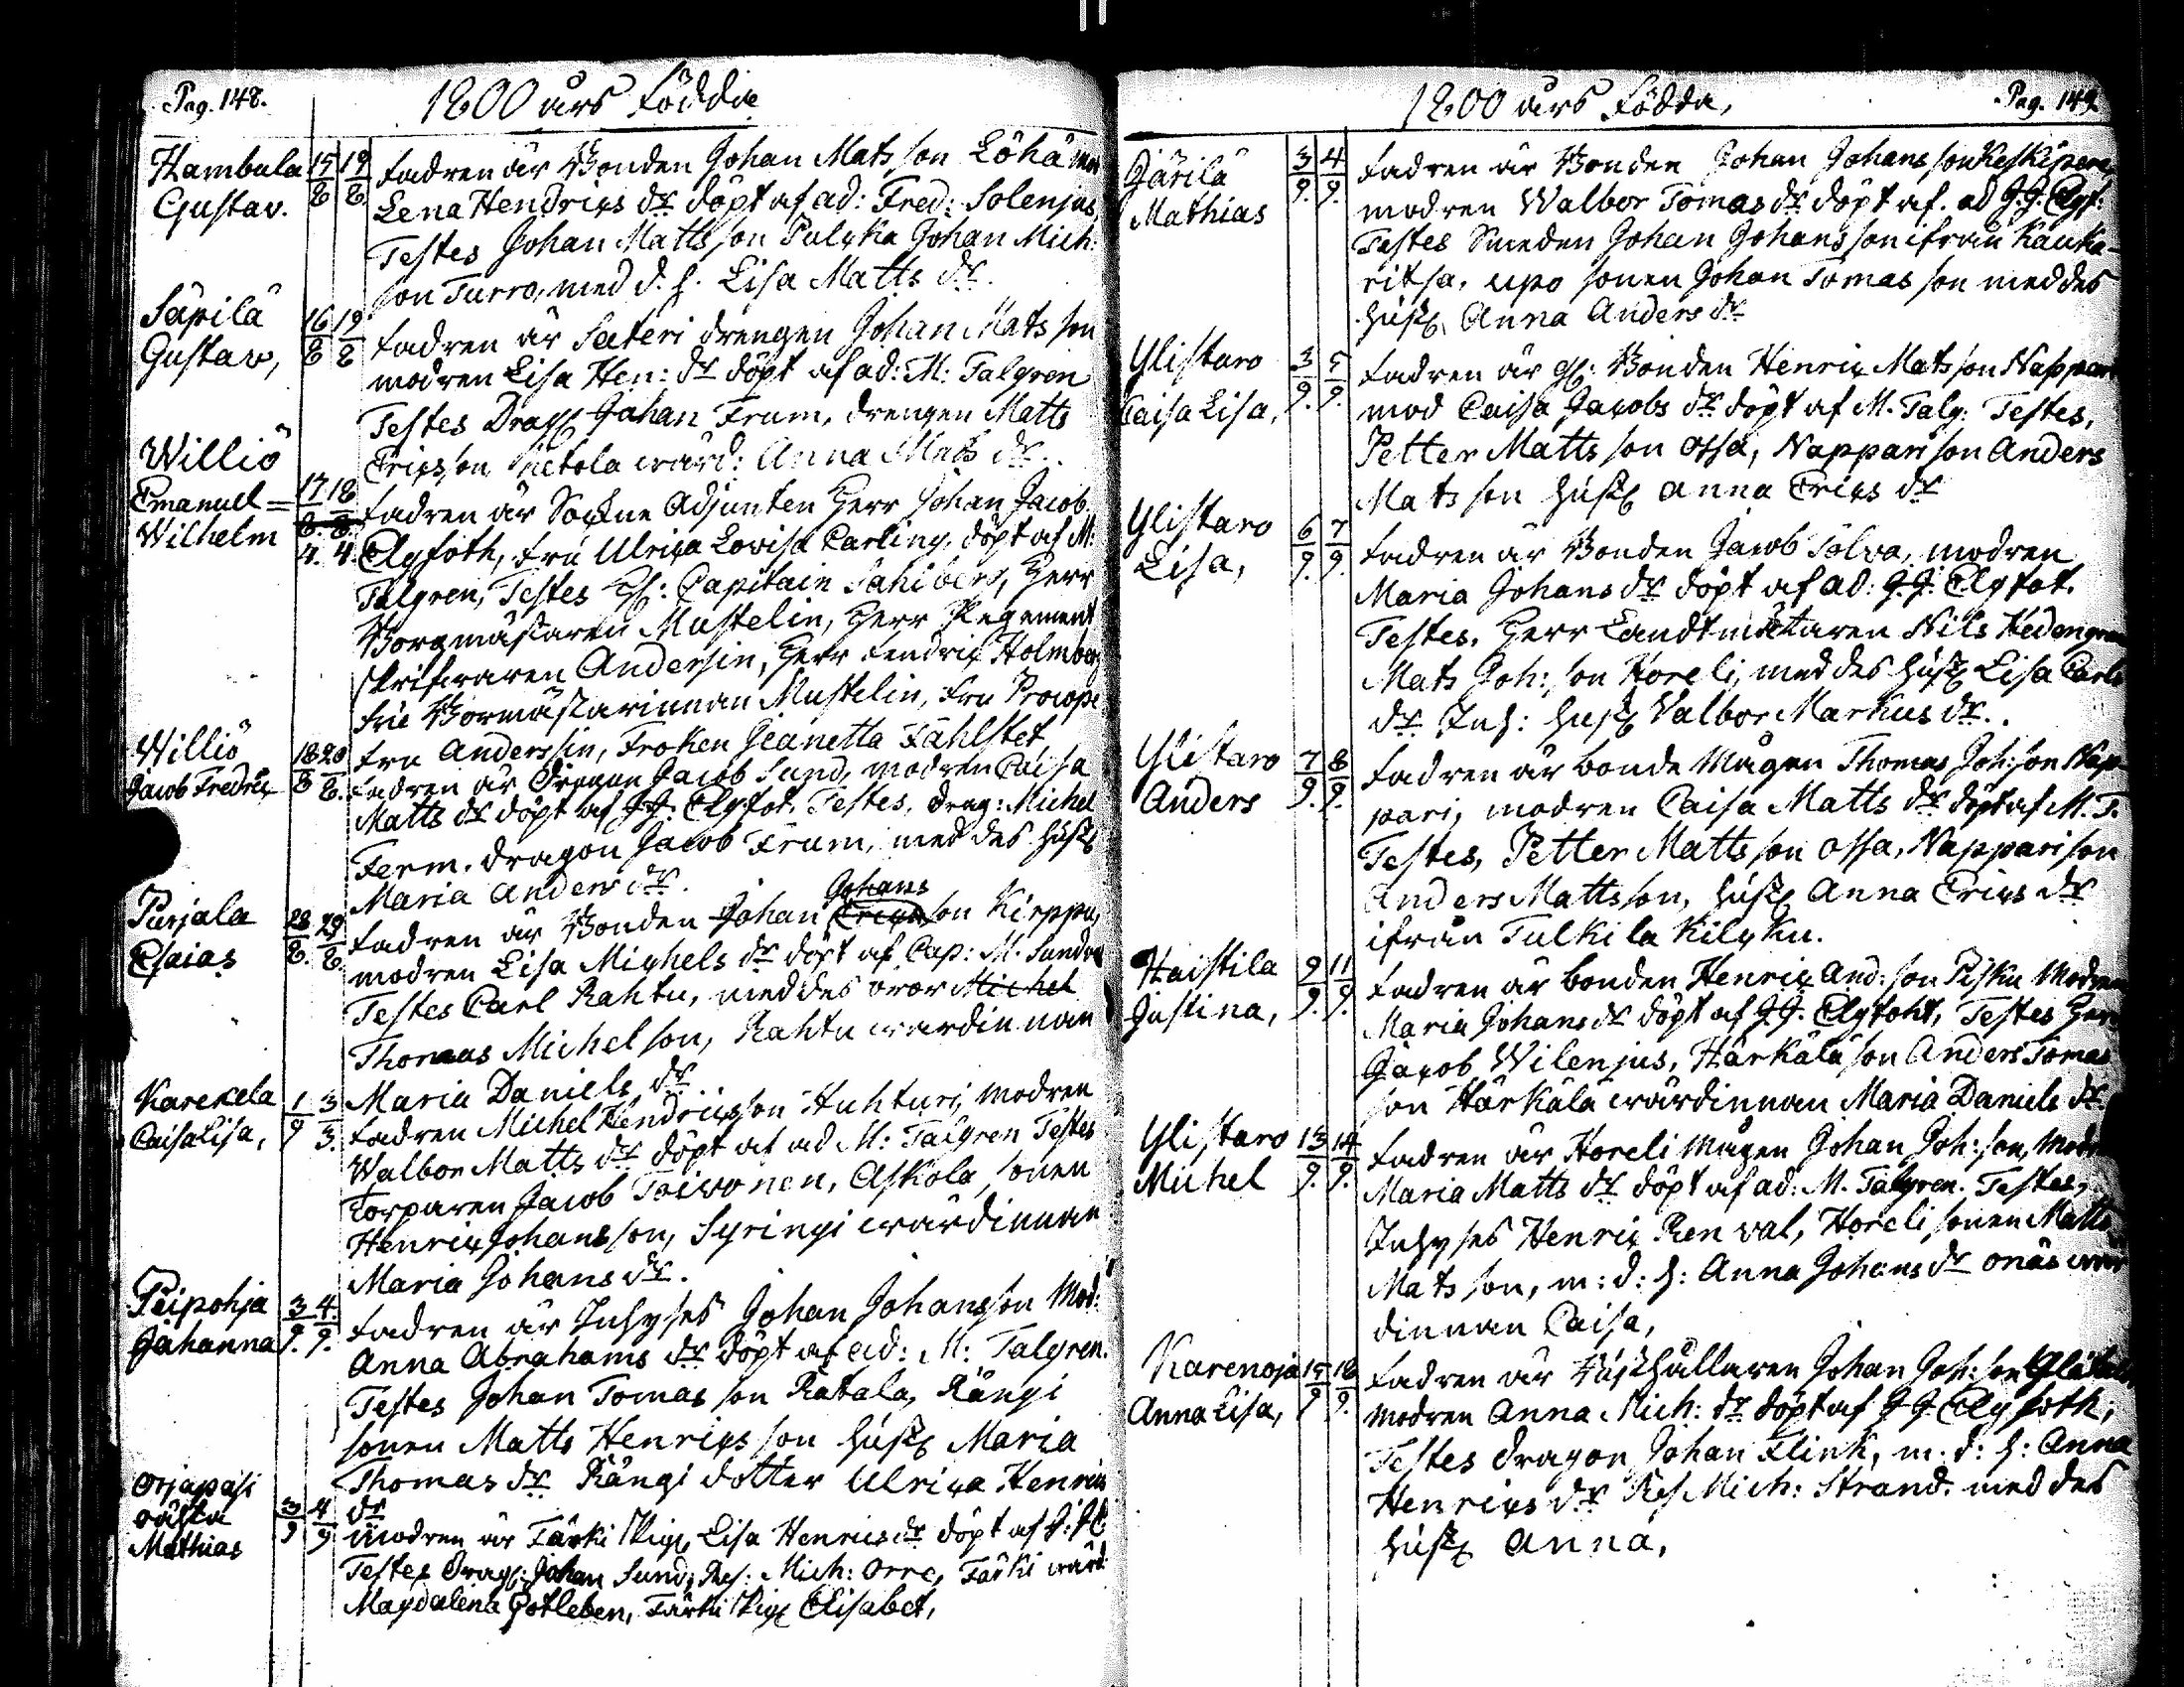 Pag. 148.
1800 års Födda
Hambula 15/8 19/8 Fadren är Bonden Johan Matsson Löhä mod
Gustav. Lena Hendrics dr döpt af ad: Fred: Solenjus,
Testes Johan Mattsson Pulcka Johan Mich:
son Turro, med d. h. Lisa Matts dr.
Säpilä 16/8 19/8 Fadren är Säteri drengen Johan Matsson
Gustaw, modren Lisa Hen: dr döpt af ad: M: Talgren
Testes Drag Johan Frum, drengen Matts
Ericsson Pietola wärd: Anna Mats dr.
Williö
Emanuel= 17/8. 18/8. Fadren är Sockne Adjunten Herr Johan Jacob
Wilhelm 4. 4. Elgfoth, Fru Ulrica Lovisa Carling, döpt af M:
Talgren, Testes H: Capitain Sahlberg, Herr
Borgmästaren Mustelin, Herr Regement
skrifwaren Andersin, Herr Fendric Holmberg
Fru Bormästarinnan Mustelin, Fru Procope
Fru Anderssin, Froken Jeanetta Fåhlstet
Williö 18/8 20/8. Fadren är Dragon Jacob Sund, modren Caisa
Jacob Fredric Matts dr döpt af J.J. Elgfot. Testes, Drag: Michel
Ferm. dragon Jacob Frum, med des hust
Maria Anders dr.
Johans
Purjala 28/8. 29/8. Fadren är Bonden Johan Erics son Kirppu,
Esaias modren Lisa Michels dr döpt af Cap: M. Sundv
Testes Carl Rahtu, med des oror Michel
Thomas Michelson, Rahtu wärdinnan
Maria Daniels dr.
Karekela 1/9 3/3. Fadren Michel Hendricsson Huhturi, modren
Caisa Lisa, Walbor Matts dr döpt af ad M: Talgren Testes
Torparen Jacob Toivonen, Askola sonen
Henric Johansson, Syringi wärdinnan
Maria Johans dr.
Peipohja 3/9. 4/9. Fadren är Inhyses Johan Johansson Mod:
Johanna Anna Abrahams dr döpt af ad: M: Talgren.
Testes Johan Tomas son Ratala, Rängi
sonen Matts Henricsson hust Maria
Thomas dr Rängi dotter Ulrica Henrics
dr
Orjapasi
råsta 3/9 4/9 Modren är Tärki Pig Lisa Henrics dr döpt af J: J E
Mathias Testes Drag: Johan Sund, Res: Mich: Orre, Tärki wärd
Magdalena Gotleben, Tärki Pig Elisabet,
1800 års Födda,
Pag. 149
Järilä 3/9. 4/9. Fadren är Bonden Johan Johansson Keskipere
Mathias modren Walbor Tomas dr döpt af. ad J.J. Elgf:
Testes Smeden Johan Johansson ifrån Kauka-
ritsa, upo sonen Johan Tomas son med des
hust, Anna Anders dr
Ylistaro 3/9. 5/9. Fadren är gl: Bonden Henric Matsson Nappari
Caisa Lisa, mod Caisa Jacobs dr döpt af M. Talg: Testes,
Petter Mattsson Ossa, Nappari son Anders
Mats son hust Anna Erics dr
Ylistaro 6/9. 7/9. Fadren är Bonden Jacob Tolva, modren
Lisa, Maria Johans dr döpt af ad: J.J. Elgfot.
Testes, Herr Landtmätaren Nils Hedengren
Mats Joh: son Horeli, med des hust Lisa Carls
dr Inh: hust Valbor Markus dr.
Ylistaro 7/9. 8/9. Fadren är bonde Mågen Thomas Joh: son Nap-
Anders pari, modren Caisa Matts dr döpt af M. T.
Testes, Petter Mattsson Ossa, Nappari son
Anders Mattsson, hust Anna Erics dr
ifrån Tulkila Kilcku.
Haistila 9/9. 11/9. Fadren är bonden Henric And: son Pisku Modren
Justina, Maria Johans dr döpt af J.J. Elgfoht, Testes Her
Jacob Wilenjus, Härkälä son Anders Tomas
son Härkälä wärdinnan Maria Daniels dr.
Ylistaro 13/9. 14/9. Fadren är Horeli mågen Johan Joh: son, Modr
Michel Maria Matts dr döpt af ad: M. Talgren. Testes,
Inhyses Henric Renval, Horeli sonen Matts
Mats son, m: d: h: Anna Johans dr Onäs wär
dinnan Caisa,
Karenoja 15/9 18/9. Fadren är hushållaren Johan Joh: son
Anna Lisa, modren Anna Mich: dr döpt af J J Elgfoth,
Testes dragon Johan Flink, m: d: h: Anna
Henrics dr Res Mich: Strand. med des
hust Anna,